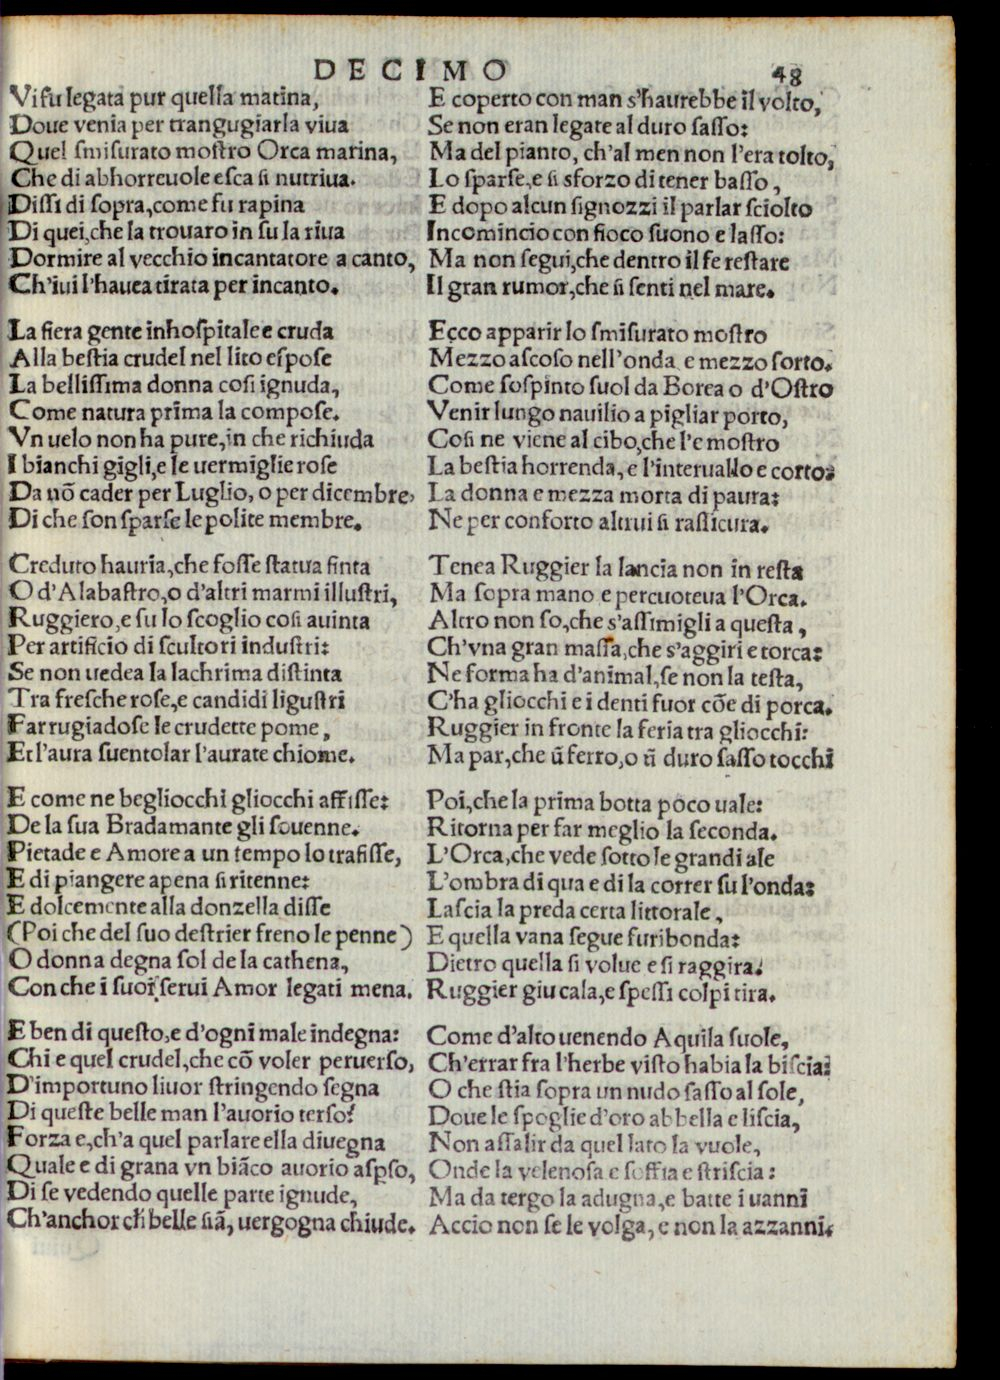 DECIMO 48
Vi fu legata pur quella matina,
Doue venia per trangugiarla viua
Quel smisurato mostro Orca marina,
Che di abhorreuole esca si nutriua.
Dissi di sopra, come fu rapina
Di quei, che la trouaro in su la riua
Dormire al vecchio incantatore a canto,
Ch'iui l'hauea tirata per incanto.
La fiera gente inhospitale e cruda
Alla bestia crudel nel lito espose
La bellissima donna cosi ignuda,
Come natura prima la compose.
Vn uelo non ha pure, in che richiuda
I bianchi gigli, e le uermiglie rose
Da nō cader per Luglio, o per dicembre,
Di che son sparse le polite membre.
Creduto hauria, che fosse statua finta
O d'Alabastro, o d'altri marmi illustri,
Ruggiero, e su lo scoglio cosi auinta
Per artificio di scultori industri:
Se non uedea la lachrima distinta
Tra fresche rose, e candidi ligustri
Far rugiadose le crudette pome,
Et l'aura suentolar l'aurate chiome.
E come ne begliocchi gliocchi affisse:
De la sua Bradamante gli souenne.
Pietade e Amore a un tempo lo trafisse,
E di piangere apena si ritenne:
E dolcemente alla donzella disse
(Poi che del suo destrier freno le penne)
O donna degna sol de la cathena,
Con che i suoi serui Amor legati mena.
E ben di questo, e d'ogni male indegna:
Chi e quel crudel, che cō voler peruerso,
D'importuno liuor stringendo segna
Di queste belle man l'auorio terso?
Forza e, ch'a quel parlare ella diuegna
Quale e di grana vn biāco auorio aspso,
Di se vedendo quelle parte ignude,
Ch'anchor ch belle siā, uergogna chiude.
E coperto con man s'haurebbe il volto,
Se non eran legate al duro sasso:
Ma del pianto, ch'al men non l'era tolto,
Lo sparse, e si sforzo di tener basso,
E dopo alcun signozzi il parlar sciolto
Incomincio con fioco suono e lasso:
Ma non segui, che dentro il fe restare
Il gran rumor, che si senti nel mare.
Ecco apparir lo smisurato mostro
Mezzo ascoso nell'onda e mezzo sorto.
Come sospinto suol da Borea o d'Ostro
Venir lungo nauilio a pigliar porto,
Cosi ne viene al cibo, che l'e mostro
La bestia horrenda, e l'interuallo e corto:
La donna e mezza morta di paura:
Ne per conforto altrui si rassicura.
Tenea Ruggier la lancia non in resta
Ma sopra mano e percuoteua l'Orca.
Altro non so, che s'assimigli a questa,
Ch'vna gran massa, che s'aggiri e torca:
Ne forma ha d'animal, se non la testa,
C'ha gliocchi e i denti fuor cōe di porca.
Ruggier in fronte la feria tra gliocchi:
Ma par, che ū ferro, o ū duro sasso tocchi
Poi, che la prima botta poco uale:
Ritorna per far meglio la seconda.
L'Orca, che vede sotto le grandi ale
L'ombra di qua e di la correr su l'onda:
Lascia la preda certa littorale,
E quella vana segue furibonda:
Dietro quella si volue e si raggira.
Ruggier giu cala, e spessi colpi tira.
Come d'alto uenendo Aquila suole,
Ch'errar fra l'herbe visto habia la biscia:
O che stia sopra un nudo sasso al sole,
Doue le spoglie d'oro abbella e liscia,
Non assalir da quel lato la vuole,
Onde la velenosa e soffia e striscia:
Ma da tergo la adugna, e batte i uanni
Accio non se le volga, e non la azzanni.